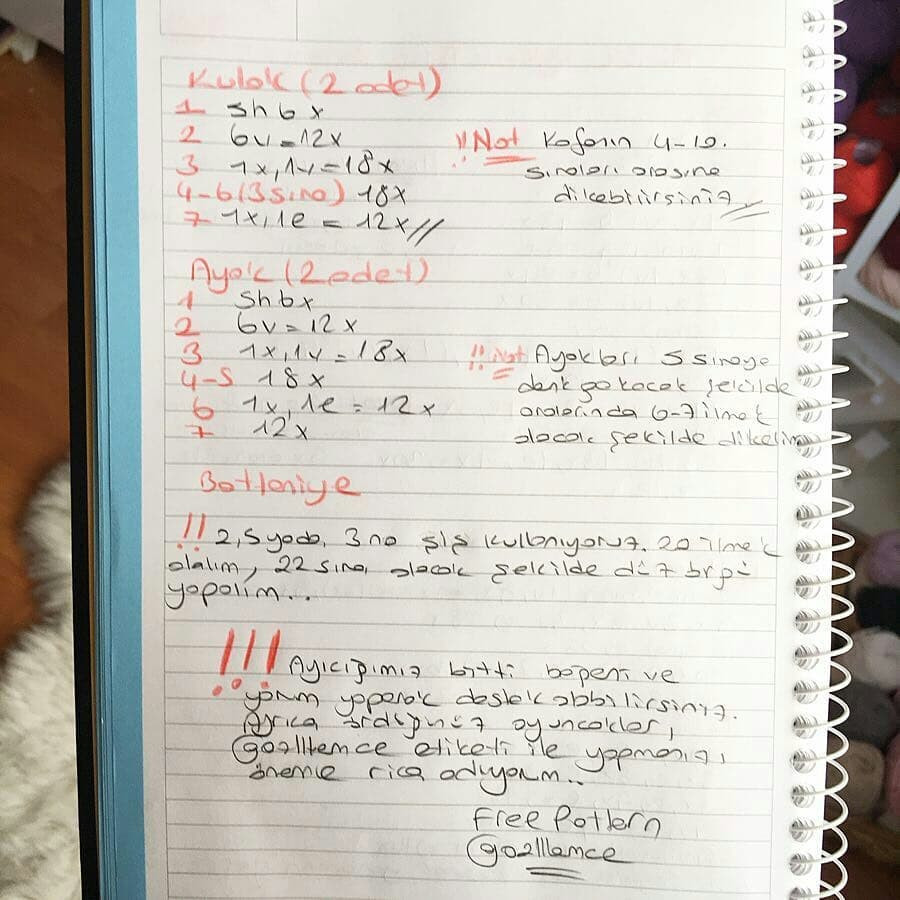 Kulak (2 adet)
1 Sh6x
2 6v=12x
3 1x,1v=18x
4-6(3sıra) 18x
7 1x,1e = 12x//
!! Not Kafanın 4-10.
sıraları arasına
dikebilirsiniz
Ayak (2 adet)
1 Sh6x
2 6v=12x
3 1x,1v=18x
4-5 18x
6 1x,1e=12x
7 12x
!! Not Ayakları 5 sıraya
denk gelecek şekilde
aralarında 6-7 ilmek
olacak şekilde dikelim
Battaniye
!! 2,5 yada 3 no şiş kullanıyoruz. 20 ilmek
alalım, 22 sıra, olacak şekilde düz örgü
yapalım...
!!! Ayıcığımız bitti beğeni ve
yorum yaparak destek olabilirsiniz.
Ayrıca ördüğünüz oyuncakları,
@gozlltemce etiketi ile yapmanızı
önemle rica ediyorum..
Free Pattern